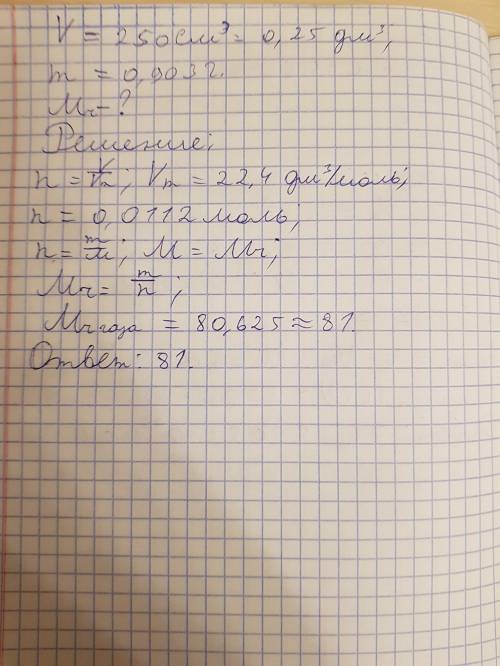 V = 250 см³ = 0,25 дм³;
m = 0,903 г.
Mr - ?
Решение:
n = V/Vm; Vm = 22,4 дм³/моль;
n = 0,0112 моль;
n = m/M; M = Mr;
Mr = m/n;
Mr газа = 80,625 ≈ 81.
Ответ: 81.